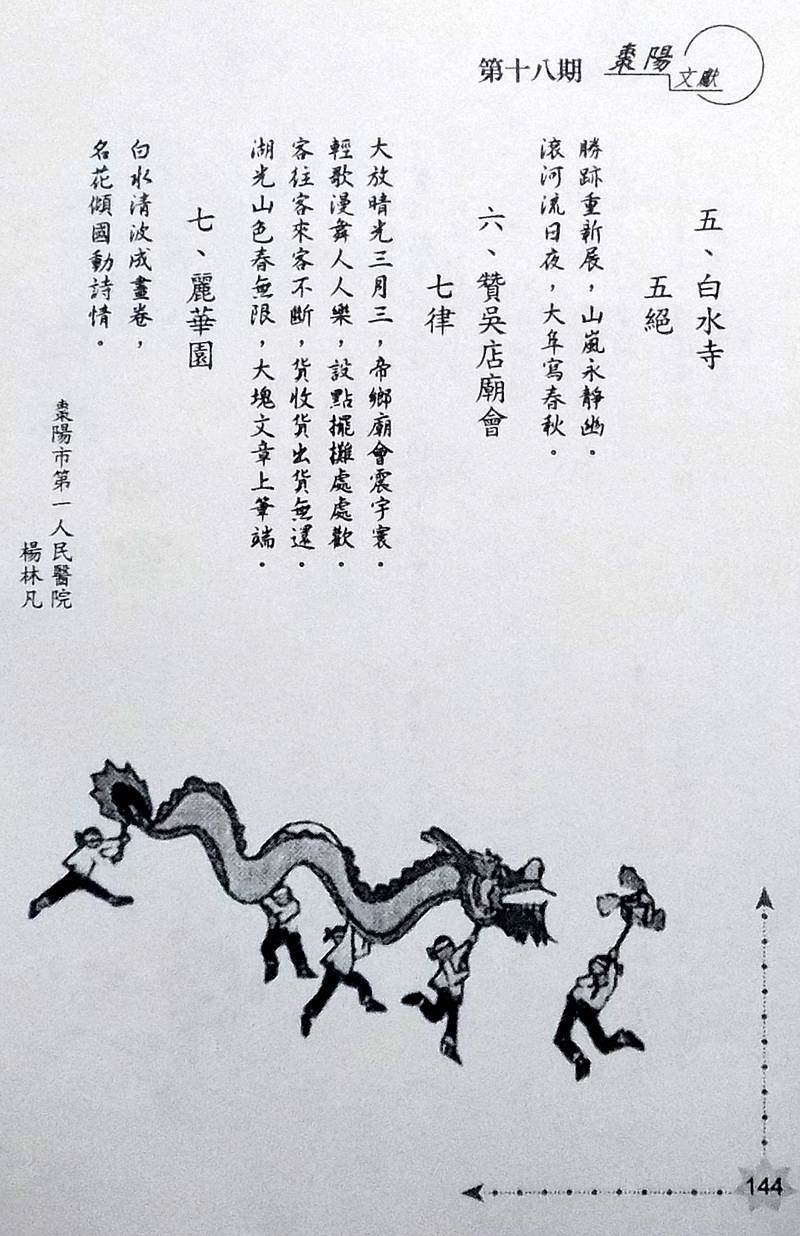 第十八期
棗陽
文獻
五、白水寺
五絕
勝跡重新展，山嵐永靜幽．
滚河流日夜，大阜寫春秋．
六、贊吳店廟會
七律
大放晴光三月三，帝鄉廟會震宇寰．
輕歌漫舞人人樂，設點擺攤處處歡．
客往客來客不斷，貨收貨出貨無還．
湖光山色春無限，大塊文章上筆端．
七、麗華園
白水清波成畫卷，
名花傾國動詩情．
棗陽市第一人民醫院
楊林凡
144